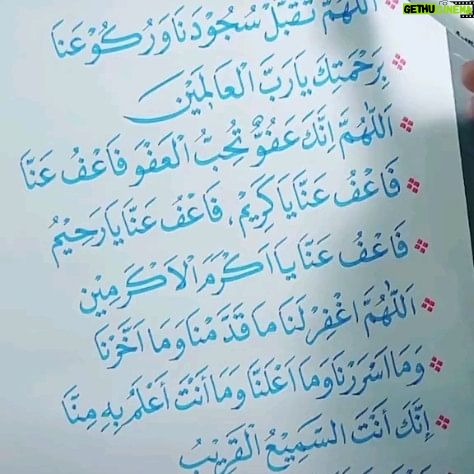 GETHUCINEMA
اَللّٰهُمَّ تَقَبَّلْ سُجُوْدَنَا وَرُكُوْعَنَا
بِرَحْمَتِكَ يَا رَبَّ الْعَالَمِيْنَ
اَللّٰهُمَّ اِنَّكَ عَفُوٌّ تُحِبُّ الْعَفْوَ فَاعْفُ عَنَّا
فَاعْفُ عَنَّا يَا كَرِيْمُ، فَاعْفُ عَنَّا يَا رَحِيْمُ
فَاعْفُ عَنَّا يَا اَكْرَمَ الْاَكْرَمِيْنَ
اَللّٰهُمَّ اغْفِرْ لَنَا مَا قَدَّمْنَا وَمَا اَخَّرْنَا
وَمَا اَسْرَرْنَا وَمَا اَعْلَنَّا وَمَا اَنْتَ اَعْلَمُ بِهِ مِنَّا
اِنَّكَ اَنْتَ السَّمِيْعُ الْقَرِيْبُ